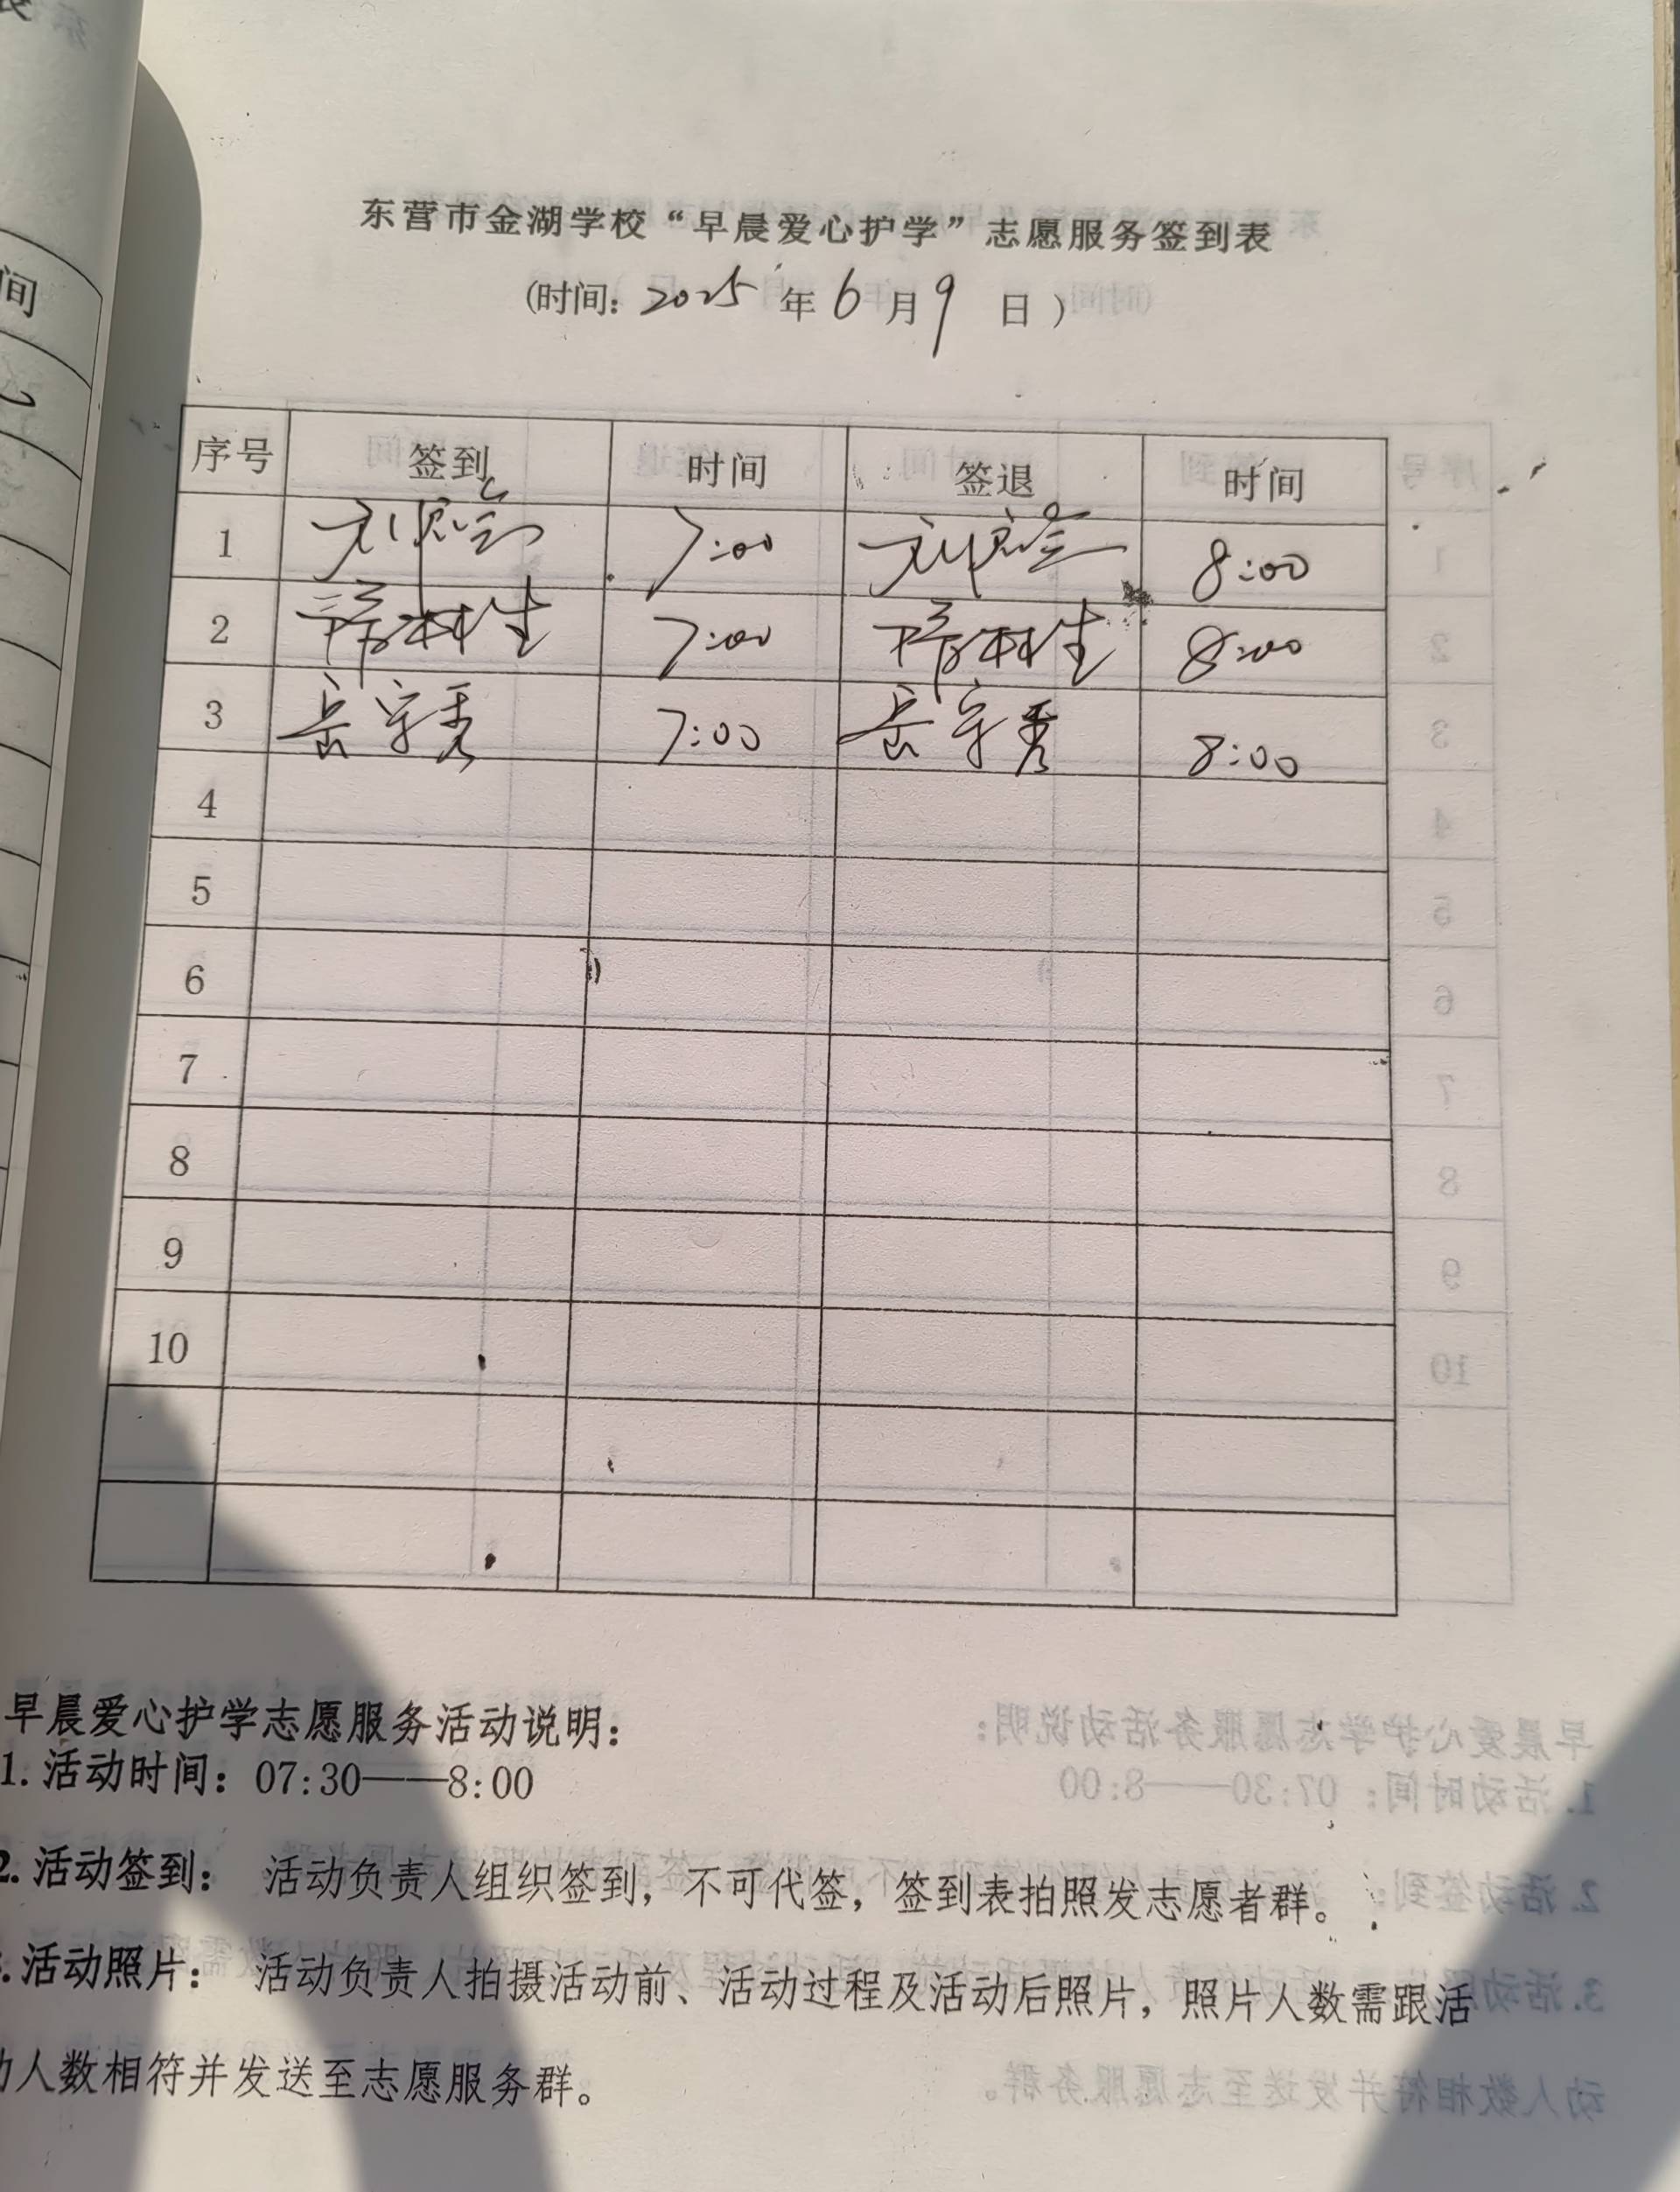 东营市金湖学校“早晨爱心护学”志愿服务签到表
(时间: 2025 年 6 月 9 日 )
序号 签到 时间 签退 时间
1 7:00 8:00
2 7:00 8:00
3 岳守秀 7:00 岳守秀 8:00
4
5
6
7
8
9
10
早晨爱心护学志愿服务活动说明：
1. 活动时间：07:30——8:00
2. 活动签到： 活动负责人组织签到，不可代签，签到表拍照发志愿者群。
.活动照片： 活动负责人拍摄活动前、活动过程及活动后照片，照片人数需跟活
动人数相符并发送至志愿服务群。